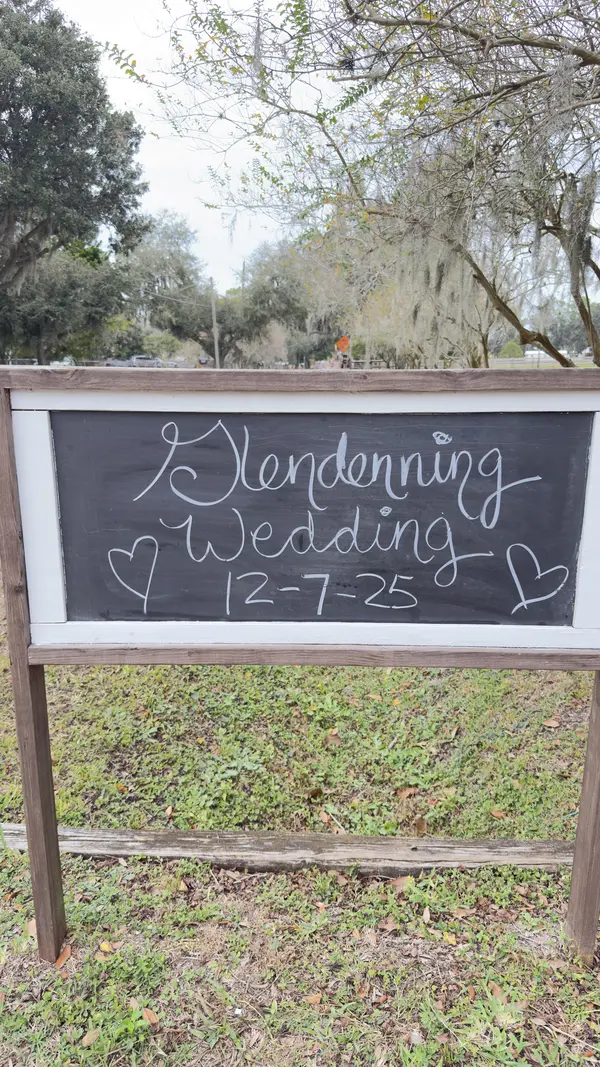 Glendenning
Wedding
12-7-25